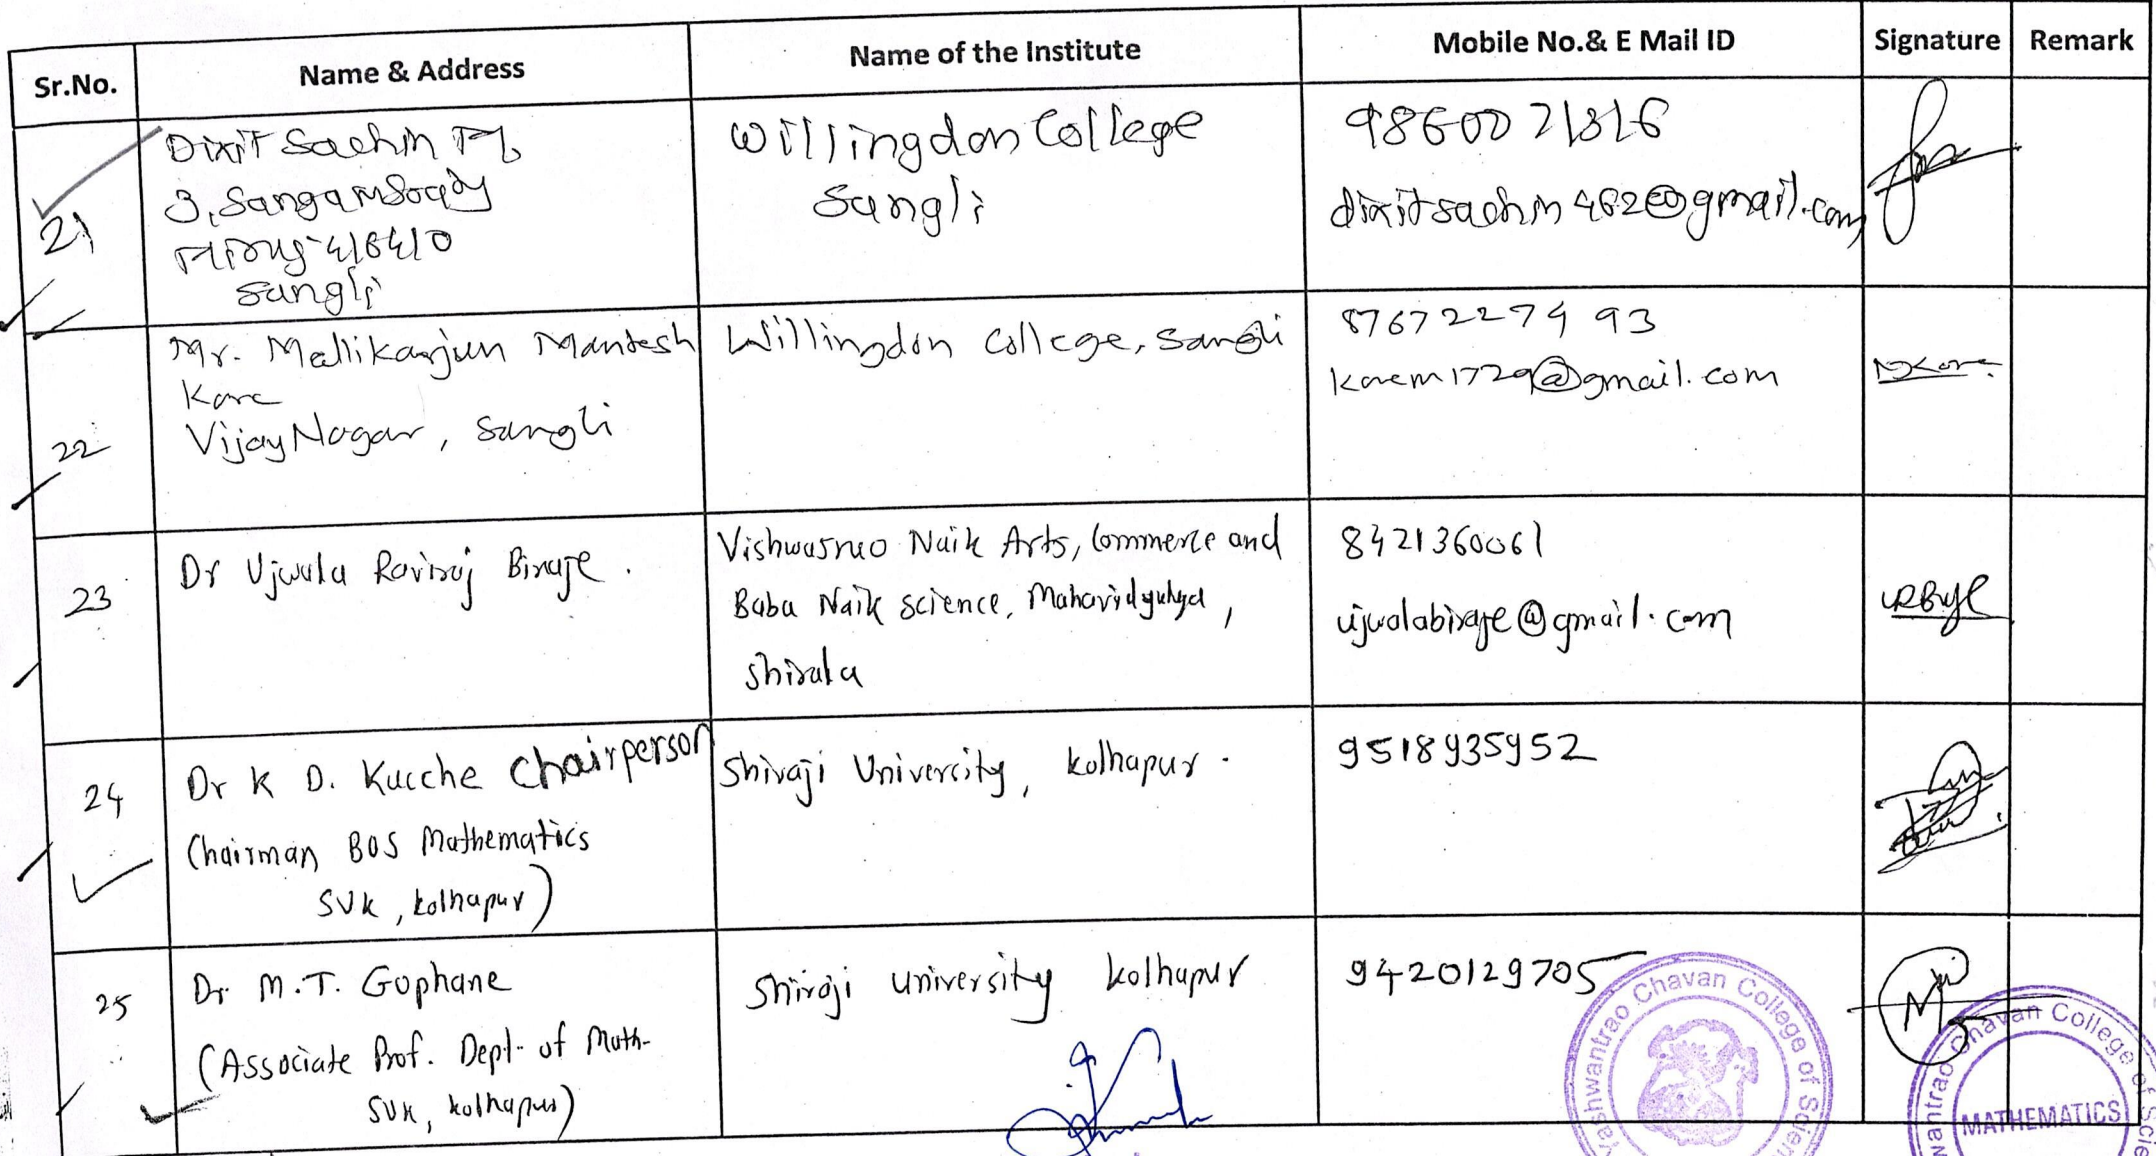 Sr.No. Name & Address Name of the Institute Mobile No.& E Mail ID Signature Remark
21
Dixit Sachin
3, Sangam
416410
Sangli
Willingdon College
Sangli
dixitsachin462@gmail.com
22
Mr. Mallikarjun Mantesh
Kore
Vijay Nagar, Sangli
Willingdon College, Sangli
8767227493
korem1729@gmail.com
23
Dr Ujwala Raviraj Biraje.
Vishwasrao Naik Arts, Commerce and
Baba Naik science, Mahavidyalya,
Shirala
8421360061
ujwalabiraje@gmail.com
24
Dr K D. Kucche Chairperson
Chairman BOS Mathematics
SUK, kolhapur)
Shivaji Univercity, kolhapur.
9518935952
25
Dr. M.T. Gophane
(Associate Prof. Dept. of Math-
SUK, kolhapur)
Shivaji university kolhapur
9420129705
Yashwantrao Chavan College of Scien
wantrao Chavan College of Scie
MATHEMATICS